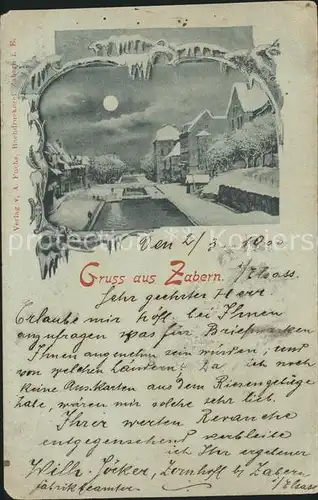 Verlag v. A. Fuchs, Buchdruckerei, Zabern i. E.
Den 2/3 1900
Gruss aus Zabern.
i/Elsass.
Sehr geehrter Herr.
Erlaube mir höfl. bei Ihnen
anzufragen was für Briefmarken
Ihnen angenehm sein würden, und
von welchen Ländern? Da ich noch
keine Ans.Karten aus dem Riesengebirge
habe, wären mir solche sehr lieb.
Ihrer werten Revanche
entgegensehend verbleibe
ich Ihr ergebener
Wilh. Jöcker, Zornhoff bei Zabern
fabrikbeamter. i/Elsass.